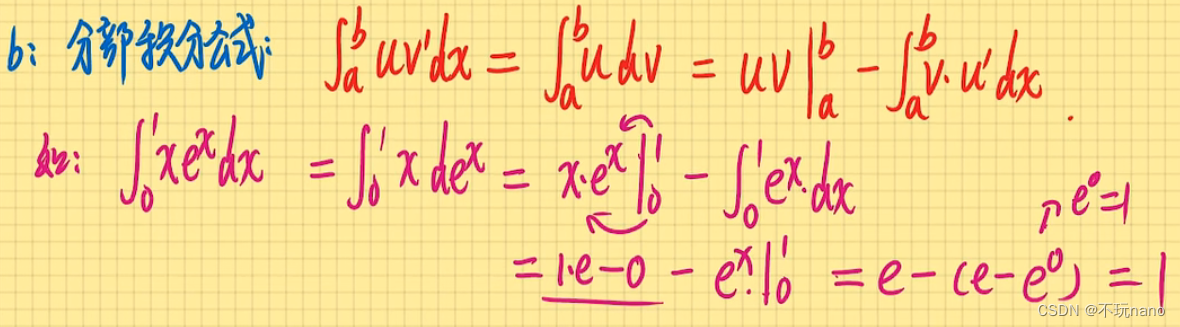 b: 分部积分公式: ∫ₐᵇ uv'dx = ∫ₐᵇ u dv = uv|ₐᵇ - ∫ₐᵇ v·u'dx.
如: ∫₀¹ xeˣdx = ∫₀¹ x deˣ = x·eˣ|₀¹ - ∫₀¹ eˣ·dx
e⁰=1
= 1·e-0 - eˣ·|₀¹ = e-(e-e⁰) = 1
CSDN @不玩nano